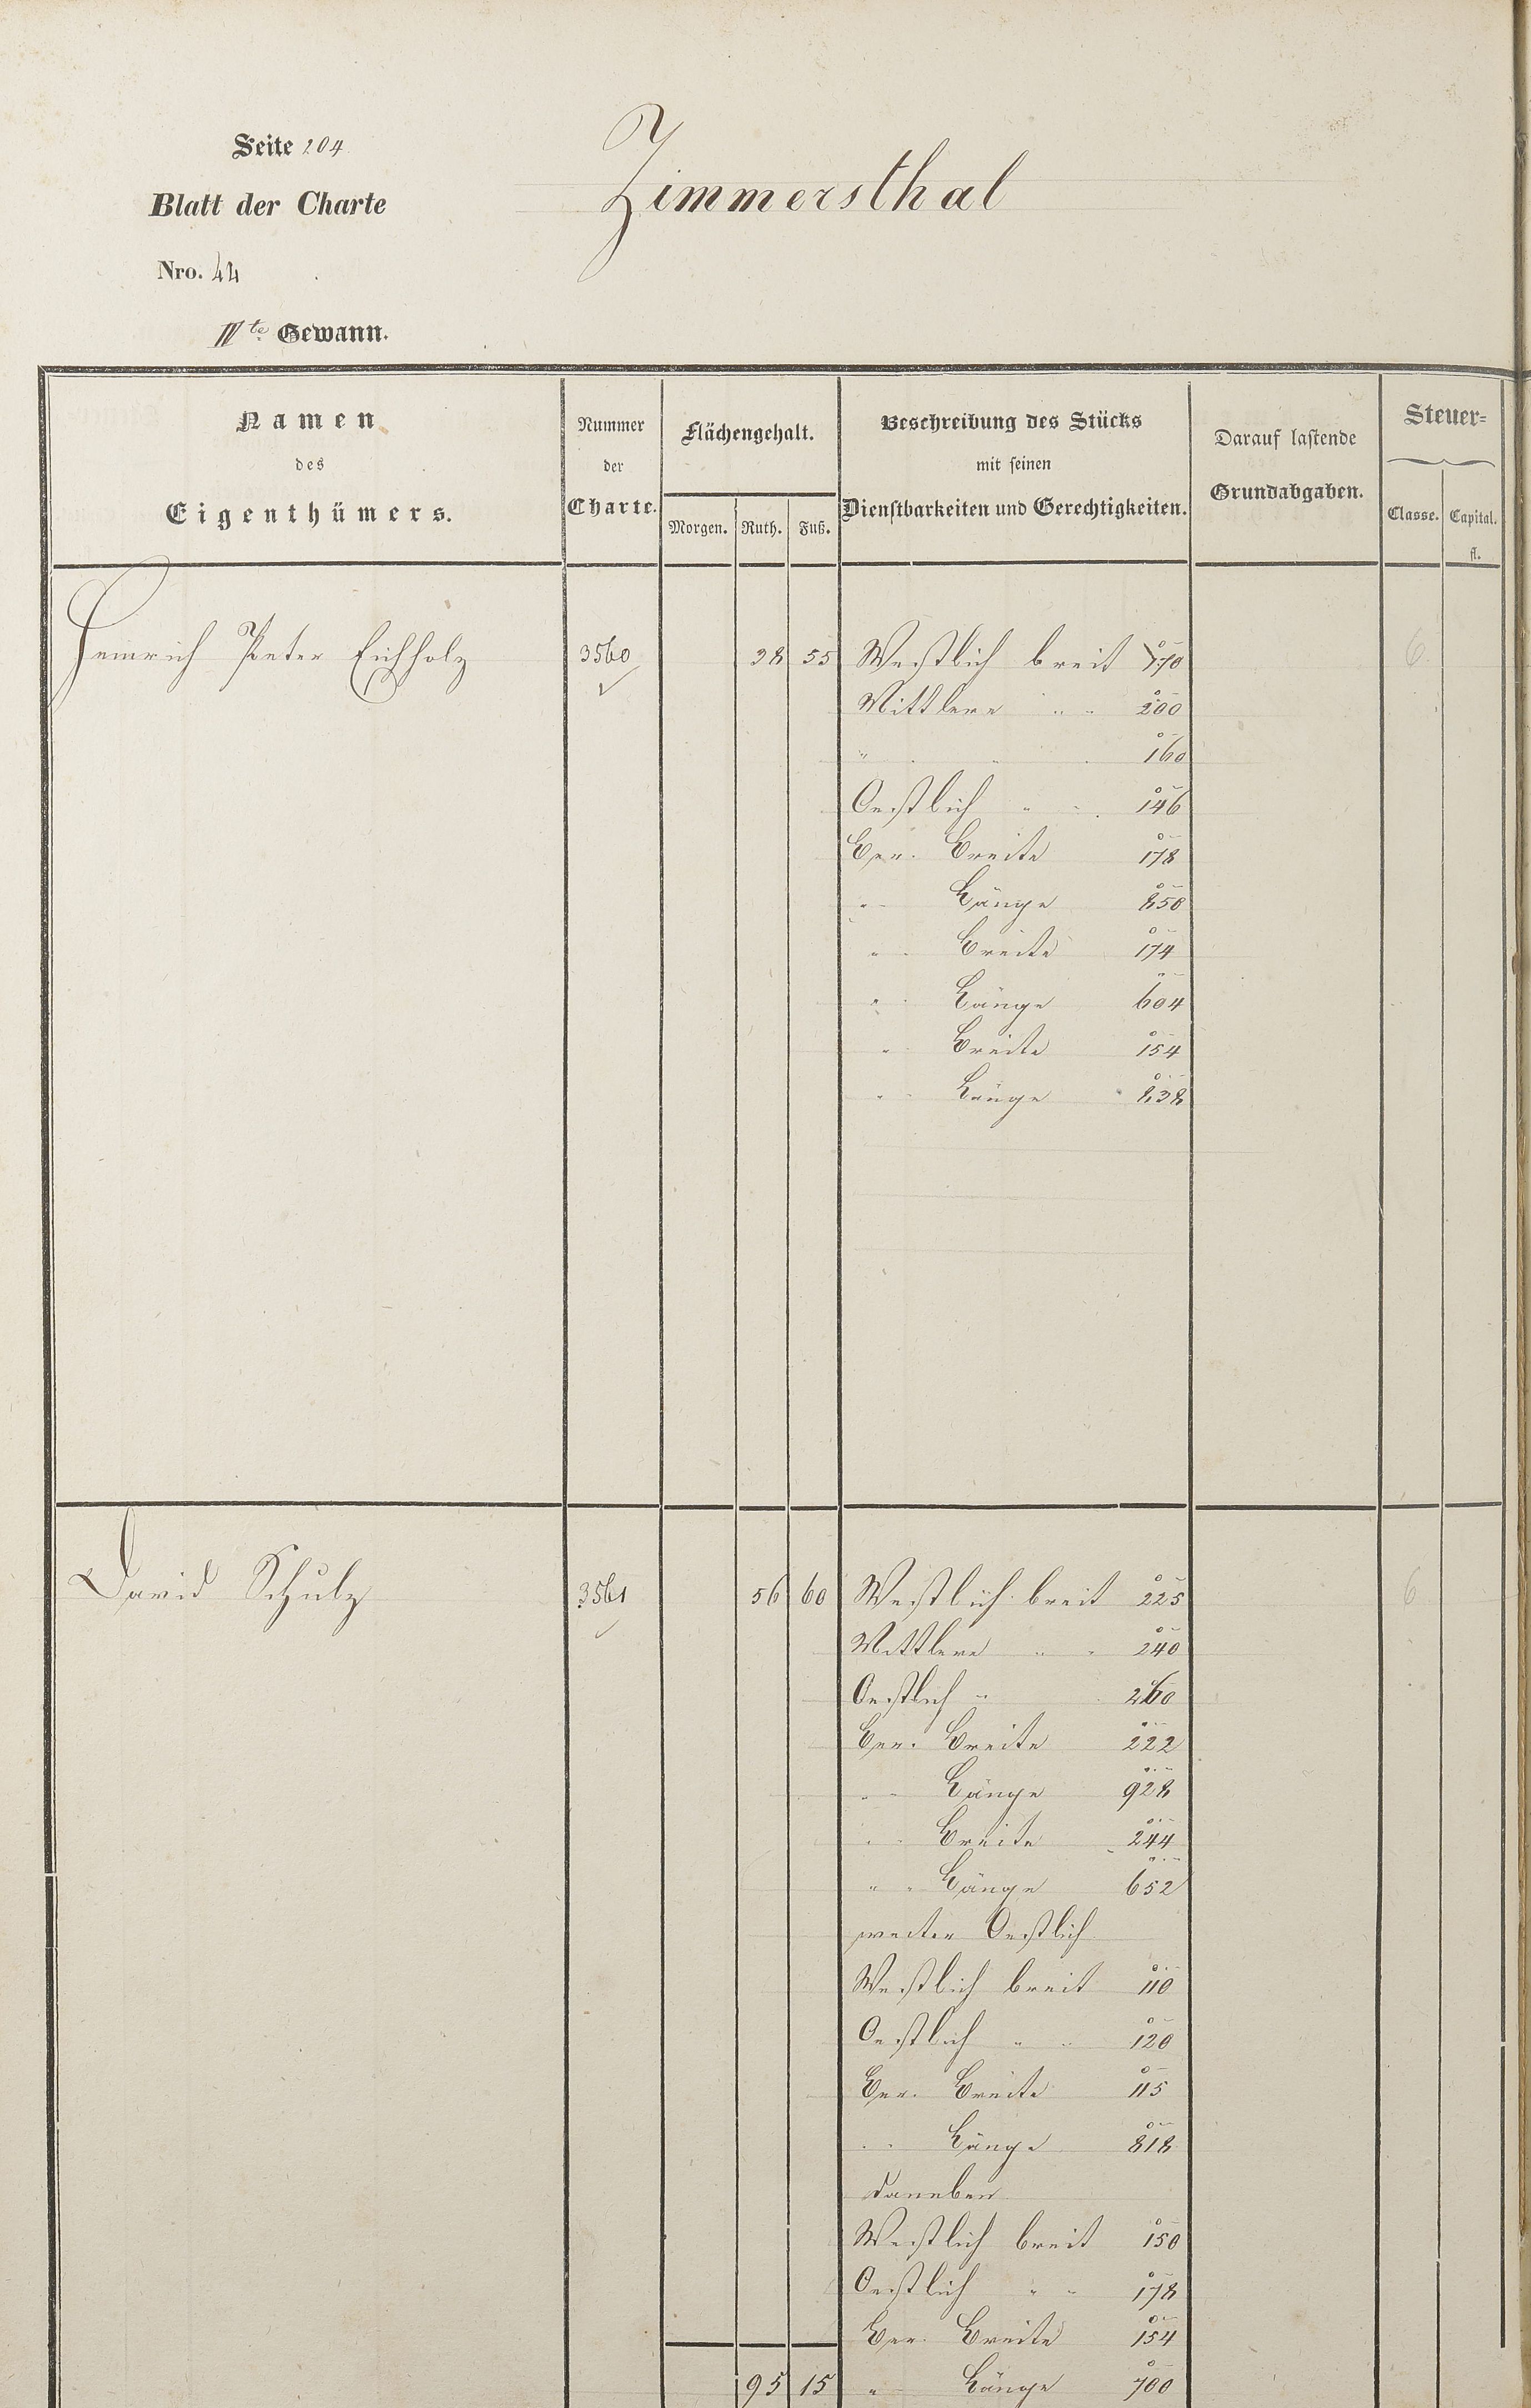 Seite 204
Zimmersthal
Blatt der Charte
Nro. 44
IVte Gewann.
Namen
des
Eigenthümers.
Nummer
der
Charte.
Flächengehalt.
Morgen. Ruth. Fuß.
Beschreibung des Stücks
mit seinen
Dienstbarkeiten und Gerechtigkeiten.
Darauf lastende
Grundabgaben.
Steuer=
Classe. Capital.
fl.
Heinrich Peter Eichholz 3560 38 55 Westlich breit 170 6.
Mittlere " " 200
" " " 160
Oestlich " " 146
Ber. Breite 178
" Länge 850
" Breite 174
" Länge 604
" Breite 154
" Länge 838
David Schulz 3561 56 60 Westlich breit 225 6
Mittlere " " 240
Oestlich " 260
Ber. Breite 222
" Länge 928
" Breite 244
" " Länge 652
weiter Oestlich
Westlich breit 110
Oestlich " " 120
Ber. Breite 115
" Länge 818
daneben
Westlich breit 150
Oestlich " " 178
Ber. Breite 154
95 15 " Länge 700